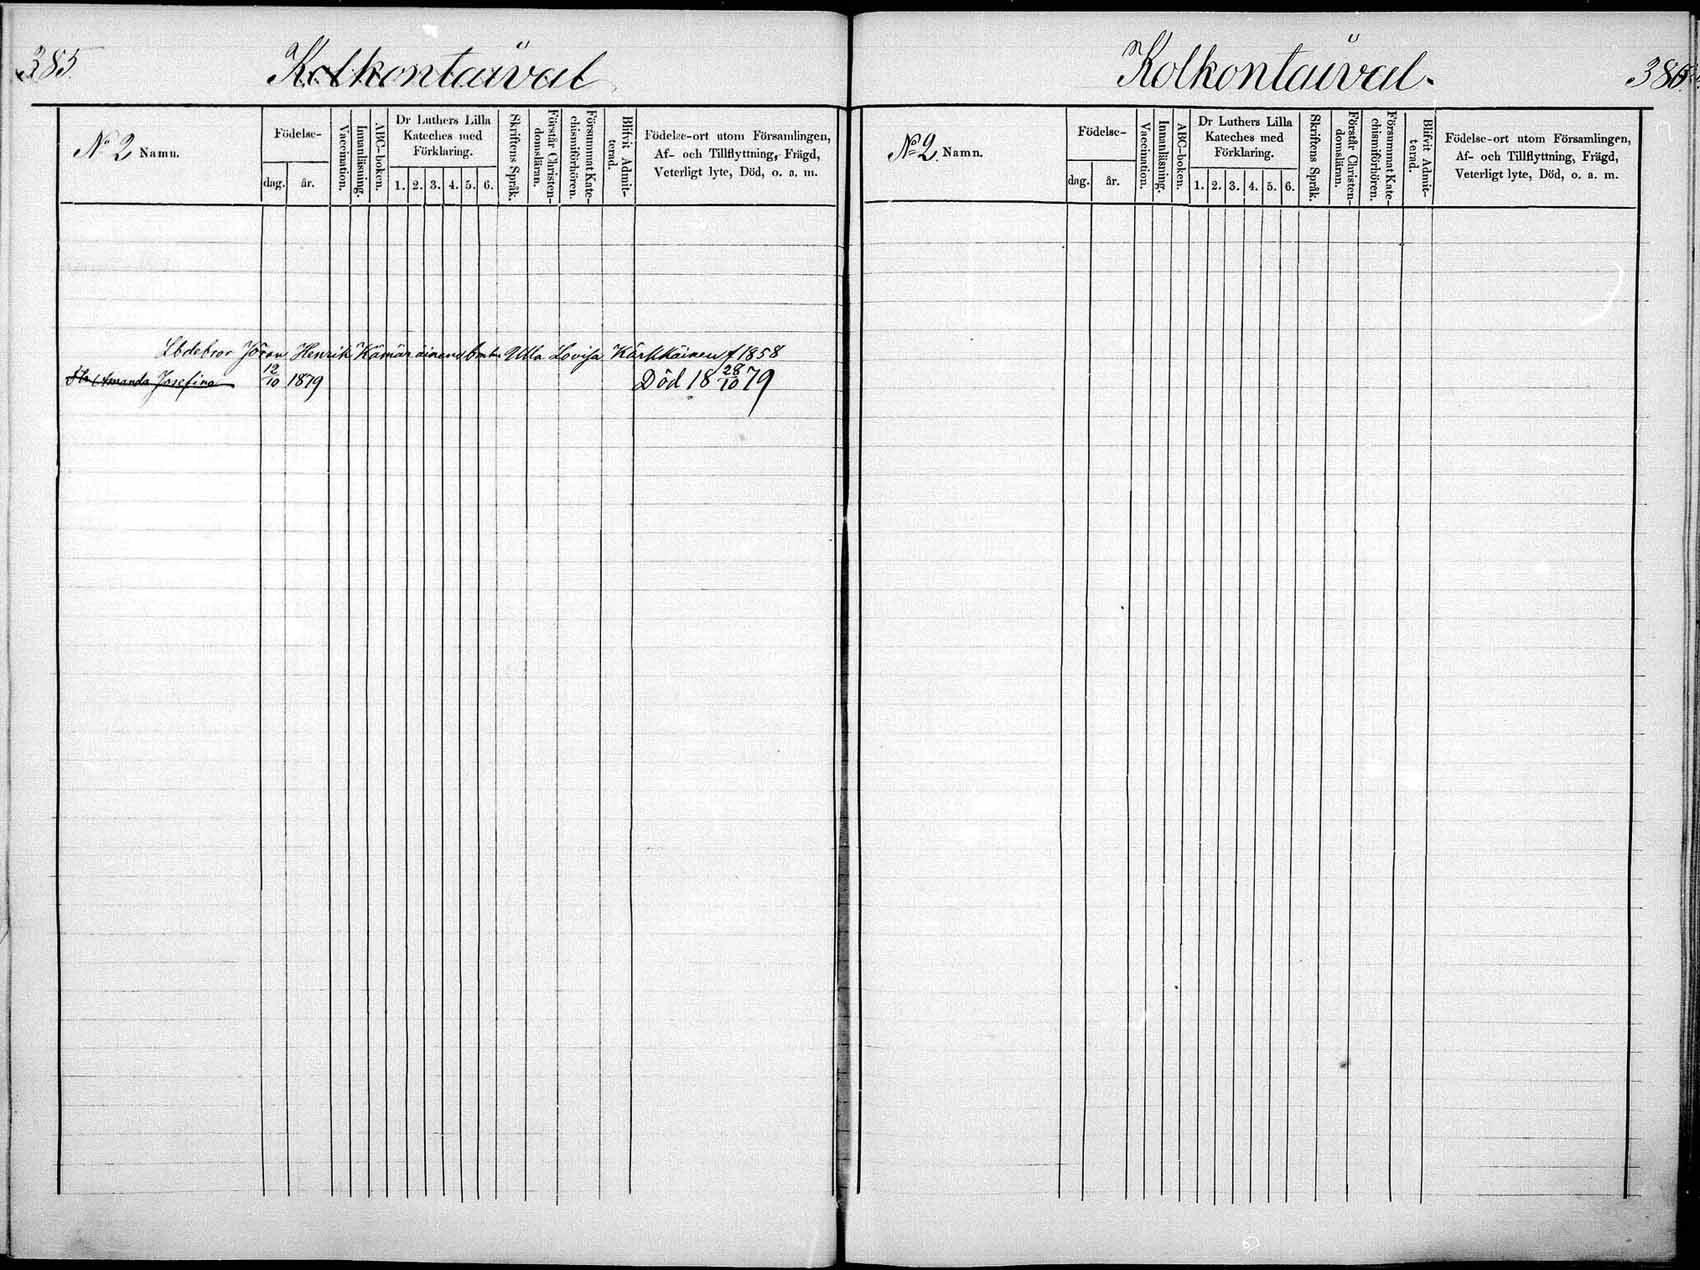 385.
Kolkontaival
Nº 2 Namn.
Födelse-
dag.
år.
Vaccination.
Innanläsning.
ABC-boken.
Dr Luthers Lilla
Kateches med
Förklaring.
1. 2. 3. 4. 5. 6.
Skriftens Språk.
Förstår Christen-
domsläran.
Försummat Kate-
chismiförhören.
Blifvit Admit-
terad.
Födelse-ort utom Församlingen,
Af- och Tillflyttning, Frägd,
Veterligt lyte, Död, o. a. m.
Jöran Henrik Kämäräinens Ulla Lovisa Kärkkäinen f 1858
Amanda Josefina 12/10 1879 Död 18 28/10 79
Kolkontaival.
Nº 2. Namn.
Födelse-
dag.
år.
Vaccination.
Innanläsning.
ABC-boken.
Dr Luthers Lilla
Kateches med
Förklaring.
1. 2. 3. 4. 5. 6.
Skriftens Språk.
Förstår Christen-
domsläran.
Försummat Kate-
chismiförhören.
Blifvit Admit-
terad.
Födelse-ort utom Församlingen,
Af- och Tillflyttning, Frägd,
Veterligt lyte, Död, o. a. m.